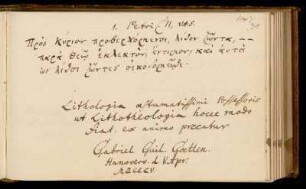 1. Petri II, v. 4. 5.
Πρὸς Κύριον προσερχόμενοι, λίθον ζῶντα, --
παρὰ Θεῷ ἐκλεκτὸν, ἔντιμον, καὶ αὐτοὶ
ὡς λίθοι ζῶντες οἰκοδομεῖσθε
Lithologia Possessoris
ut Lithotheologia hocce modo
fiat, ex animo precatur
Gabriel Guil. Goetten.
Hanovera d. V. Apr.